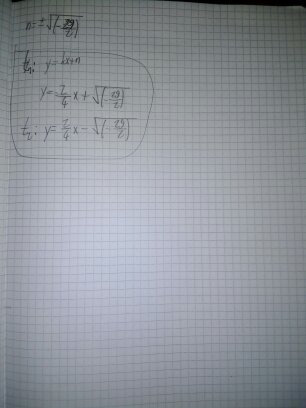 n=±√(-29/2)
t₁: y=kx+n
y=7/4x+√(-29/2)
t₂: y=7/4x-√(-29/2)